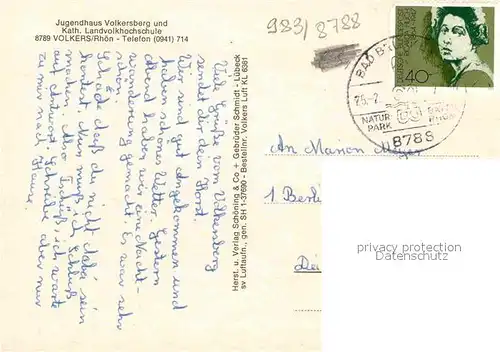 Jugendhaus Volkersberg und
Kath. Landvolkhochschule
8789 VOLKERS/Rhön - Telefon (0941) 714
983/8788
Viele Grüße vom Volkersberg
sendet dir dein Horst.
Wir sind gut angekommen und
haben schönes Wetter. Gestern
abend haben wir eine Nacht-
wanderung gemacht. Es war sehr
schön.
Schade, daß du nicht dabei sein
konntest. Nun muß ich Schluß
machen. Also Tschüß, ich warte
auf Antwort. Schreibe aber nur
zu mir nach Hause.
Herst. u. Verlag Schöning & Co + Gebrüder Schmidt - Lübeck
sv Luftaufn., gen. SH 1-37690 - Bestellnr. Volkers Luft KL 6381
40
BAD
NATUR
PARK
RHÖN
8789
An Marion Meyer
1 Berlin
privacy protection
Datenschutz